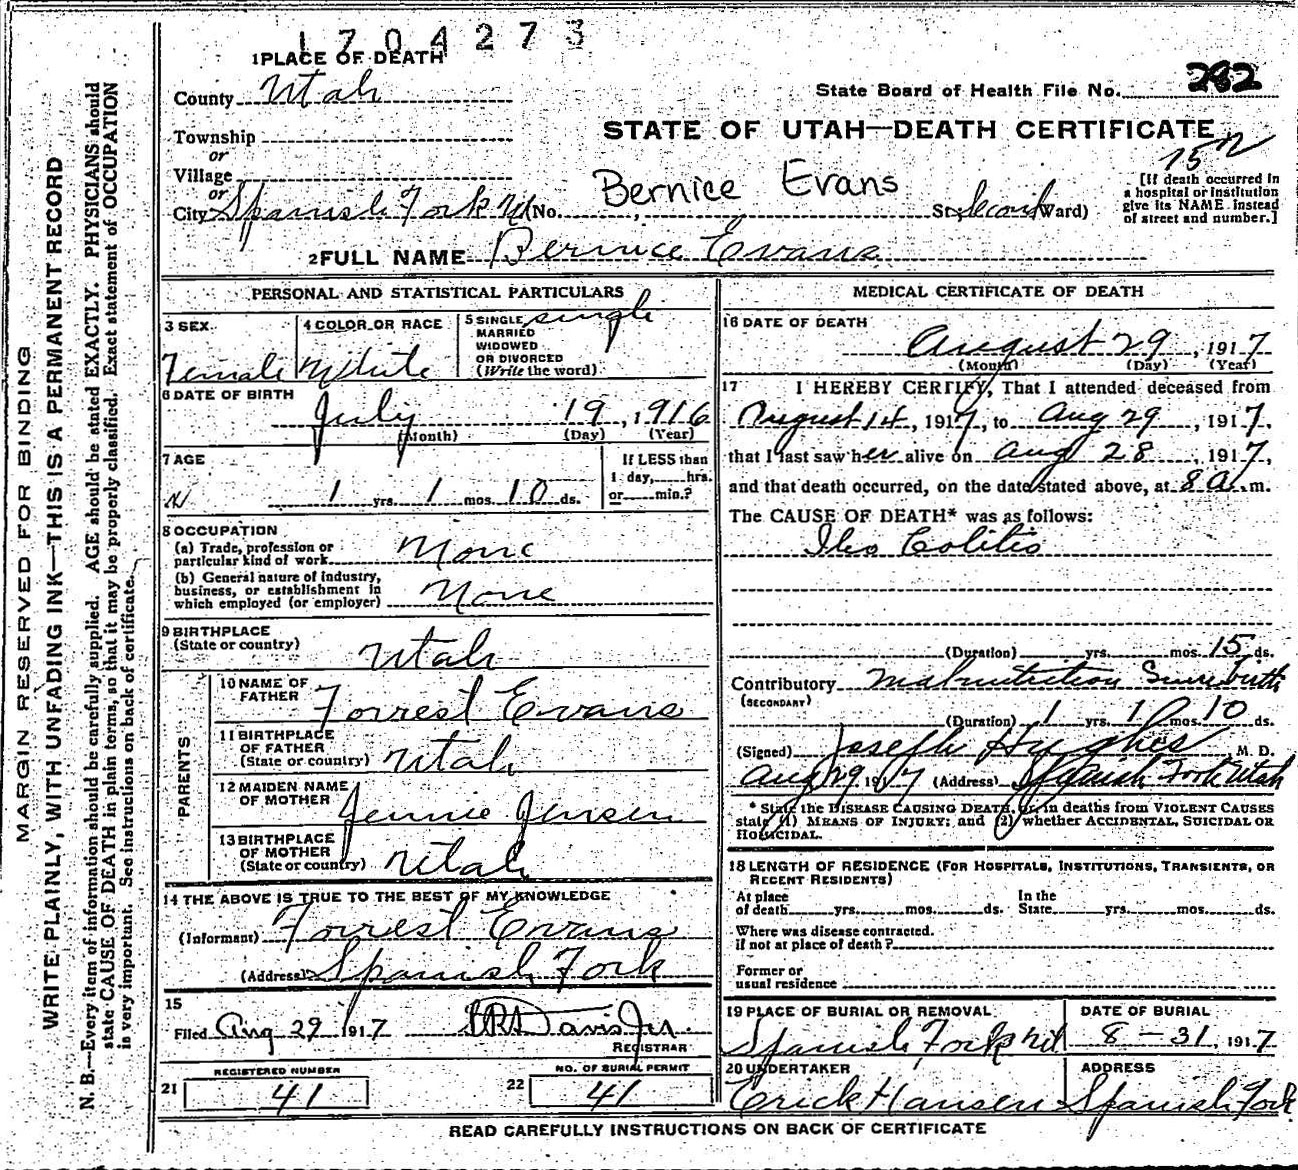 1704273
1 PLACE OF DEATH
County Utah
State Board of Health File No. 282
STATE OF UTAH—DEATH CERTIFICATE
Township
or
Village
or
City Spanish Fork Ut (No. , St; Second Ward)
Bernice Evans
[If death occurred in
a hospital or institution
give its NAME instead
of street and number.]
2 FULL NAME Bernice Evans
PERSONAL AND STATISTICAL PARTICULARS
3 SEX
Female
4 COLOR OR RACE
White
5 SINGLE
MARRIED
WIDOWED
OR DIVORCED
(Write the word)
Single
6 DATE OF BIRTH
July 19, 1916
(Month) (Day) (Year)
7 AGE
1 yrs. 1 mos. 10 ds.
If LESS than
1 day, hrs.
or min.?
8 OCCUPATION
(a) Trade, profession or
particular kind of work None
(b) General nature of industry,
business, or establishment in
which employed (or employer) None
9 BIRTHPLACE
(State or country)
Utah
PARENTS
10 NAME OF
FATHER Forrest Evans
11 BIRTHPLACE
OF FATHER
(State or country) Utah
12 MAIDEN NAME
OF MOTHER Jennie Jensen
13 BIRTHPLACE
OF MOTHER
(State or country) Utah
14 THE ABOVE IS TRUE TO THE BEST OF MY KNOWLEDGE
(Informant) Forrest Evans
(Address) Spanish Fork
15
Filed Aug 29 1917 Davis Jr.
REGISTRAR
21 REGISTERED NUMBER
41
22 NO. OF BURIAL PERMIT
41
MEDICAL CERTIFICATE OF DEATH
16 DATE OF DEATH
August 29, 1917
(Month) (Day) (Year)
17 I HEREBY CERTIFY, That I attended deceased from
August 14, 1917, to Aug 29, 1917,
that I last saw her alive on Aug 28, 1917,
and that death occurred, on the date stated above, at 8 a. m.
The CAUSE OF DEATH* was as follows:
Ileo Colitis
(Duration) yrs. mos. 15 ds.
Contributory Malnutrition Since birth
(SECONDARY)
(Duration) 1 yrs. 1 mos. 10 ds.
(Signed) Joseph Hughes, M. D.
Aug 29 1917 (Address) Spanish Fork Utah
* State the DISEASE CAUSING DEATH, or, in deaths from VIOLENT CAUSES
state (1) MEANS OF INJURY; and (2) whether ACCIDENTAL, SUICIDAL OR
HOMICIDAL.
18 LENGTH OF RESIDENCE (FOR HOSPITALS, INSTITUTIONS, TRANSIENTS, OR
RECENT RESIDENTS)
At place
of death yrs. mos. ds.
In the
State yrs. mos. ds.
Where was disease contracted.
if not at place of death?
Former or
usual residence
19 PLACE OF BURIAL OR REMOVAL
Spanish Fork Ut
DATE OF BURIAL
8-31, 1917
20 UNDERTAKER
Erick Hansen
ADDRESS
Spanish Fork
READ CAREFULLY INSTRUCTIONS ON BACK OF CERTIFICATE
MARGIN RESERVED FOR BINDING
WRITE PLAINLY, WITH UNFADING INK—THIS IS A PERMANENT RECORD
N. B.—Every item of information should be carefully supplied. AGE should be stated EXACTLY. PHYSICIANS should
state CAUSE OF DEATH in plain terms, so that it may be properly classified. Exact statement of OCCUPATION
is very important. See instructions on back of certificate.